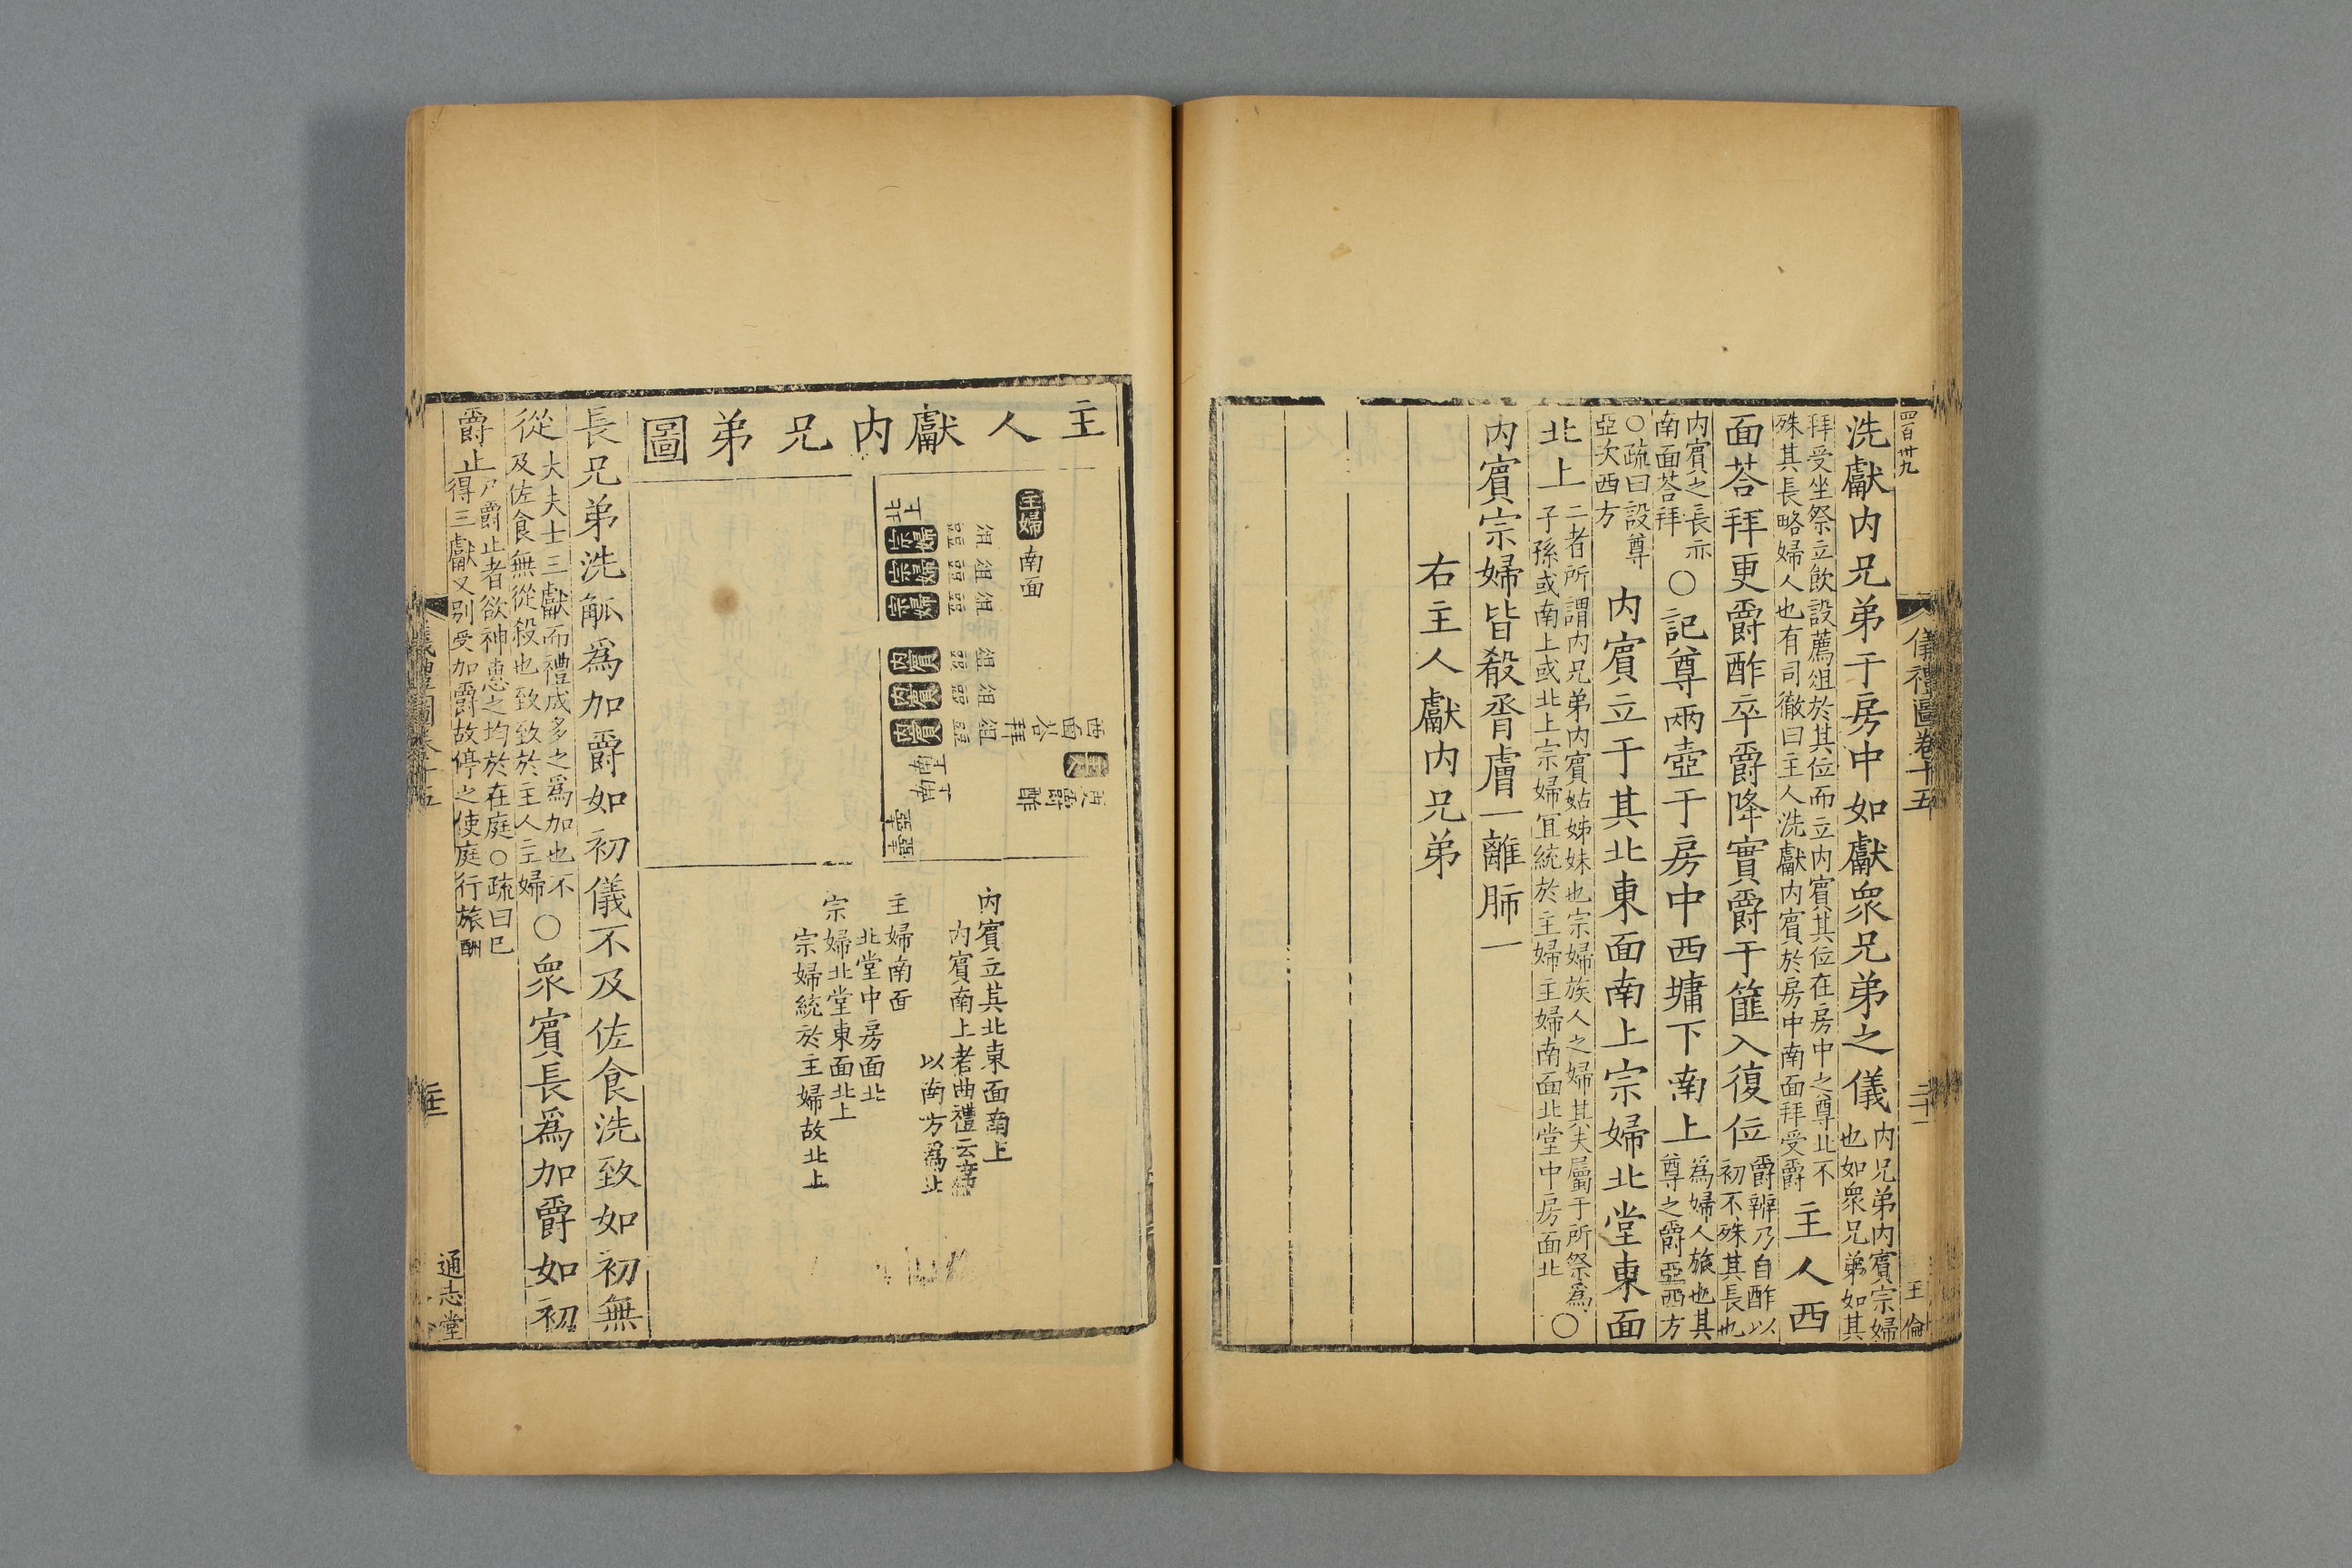 四百卅九
儀禮圖卷十五
二十一
王倫
洗獻内兄弟于房中如獻衆兄弟之儀
内兄弟内賓宗婦
也如衆兄弟如其
拜受坐祭立飲設薦俎於其位而立内賓其位在房中之尊北不
殊其長略婦人也有司徹曰主人洗獻内賓於房中南面拜受爵
主人西
面荅拜更爵酢卒爵降實爵于篚入復位
爵辯乃自酢以
初不殊其長也
内賓之長亦
南面荅拜
○記尊兩壺于房中西墉下南上
爲婦人旅也其
尊之爵亞西方
○疏曰設尊
亞次西方
内賓立于其北東面南上宗婦北堂東面
北上
二者所謂内兄弟内賓姑姊妹也宗婦族人之婦其夫屬于所祭爲
子孫或南上或北上宗婦宜統於主婦主婦南面北堂中房面北
○
内賓宗婦皆殽脀膚一離肺一
右主人獻内兄弟
主人獻内兄弟圖
主婦
南面
俎俎俎
俎俎俎
宗婦
宗婦
宗婦
内賓
内賓
内賓
西面荅拜
爵酢
内賓立其北東面南上
内賓南上者曲禮云席
以南方爲上
主婦南面
北堂中房面北
宗婦北堂東面北上
宗婦統於主婦故北上
長兄弟洗觚爲加爵如初儀不及佐食洗致如初無
從
大夫士三獻而禮成多之爲加也不
及佐食無從殺也致致於主人主婦
○衆賓長爲加爵如初
爵止
尸爵止者欲神惠之均於在庭○疏曰已
得三獻又别受加爵故停之使庭行旅酬
通志堂